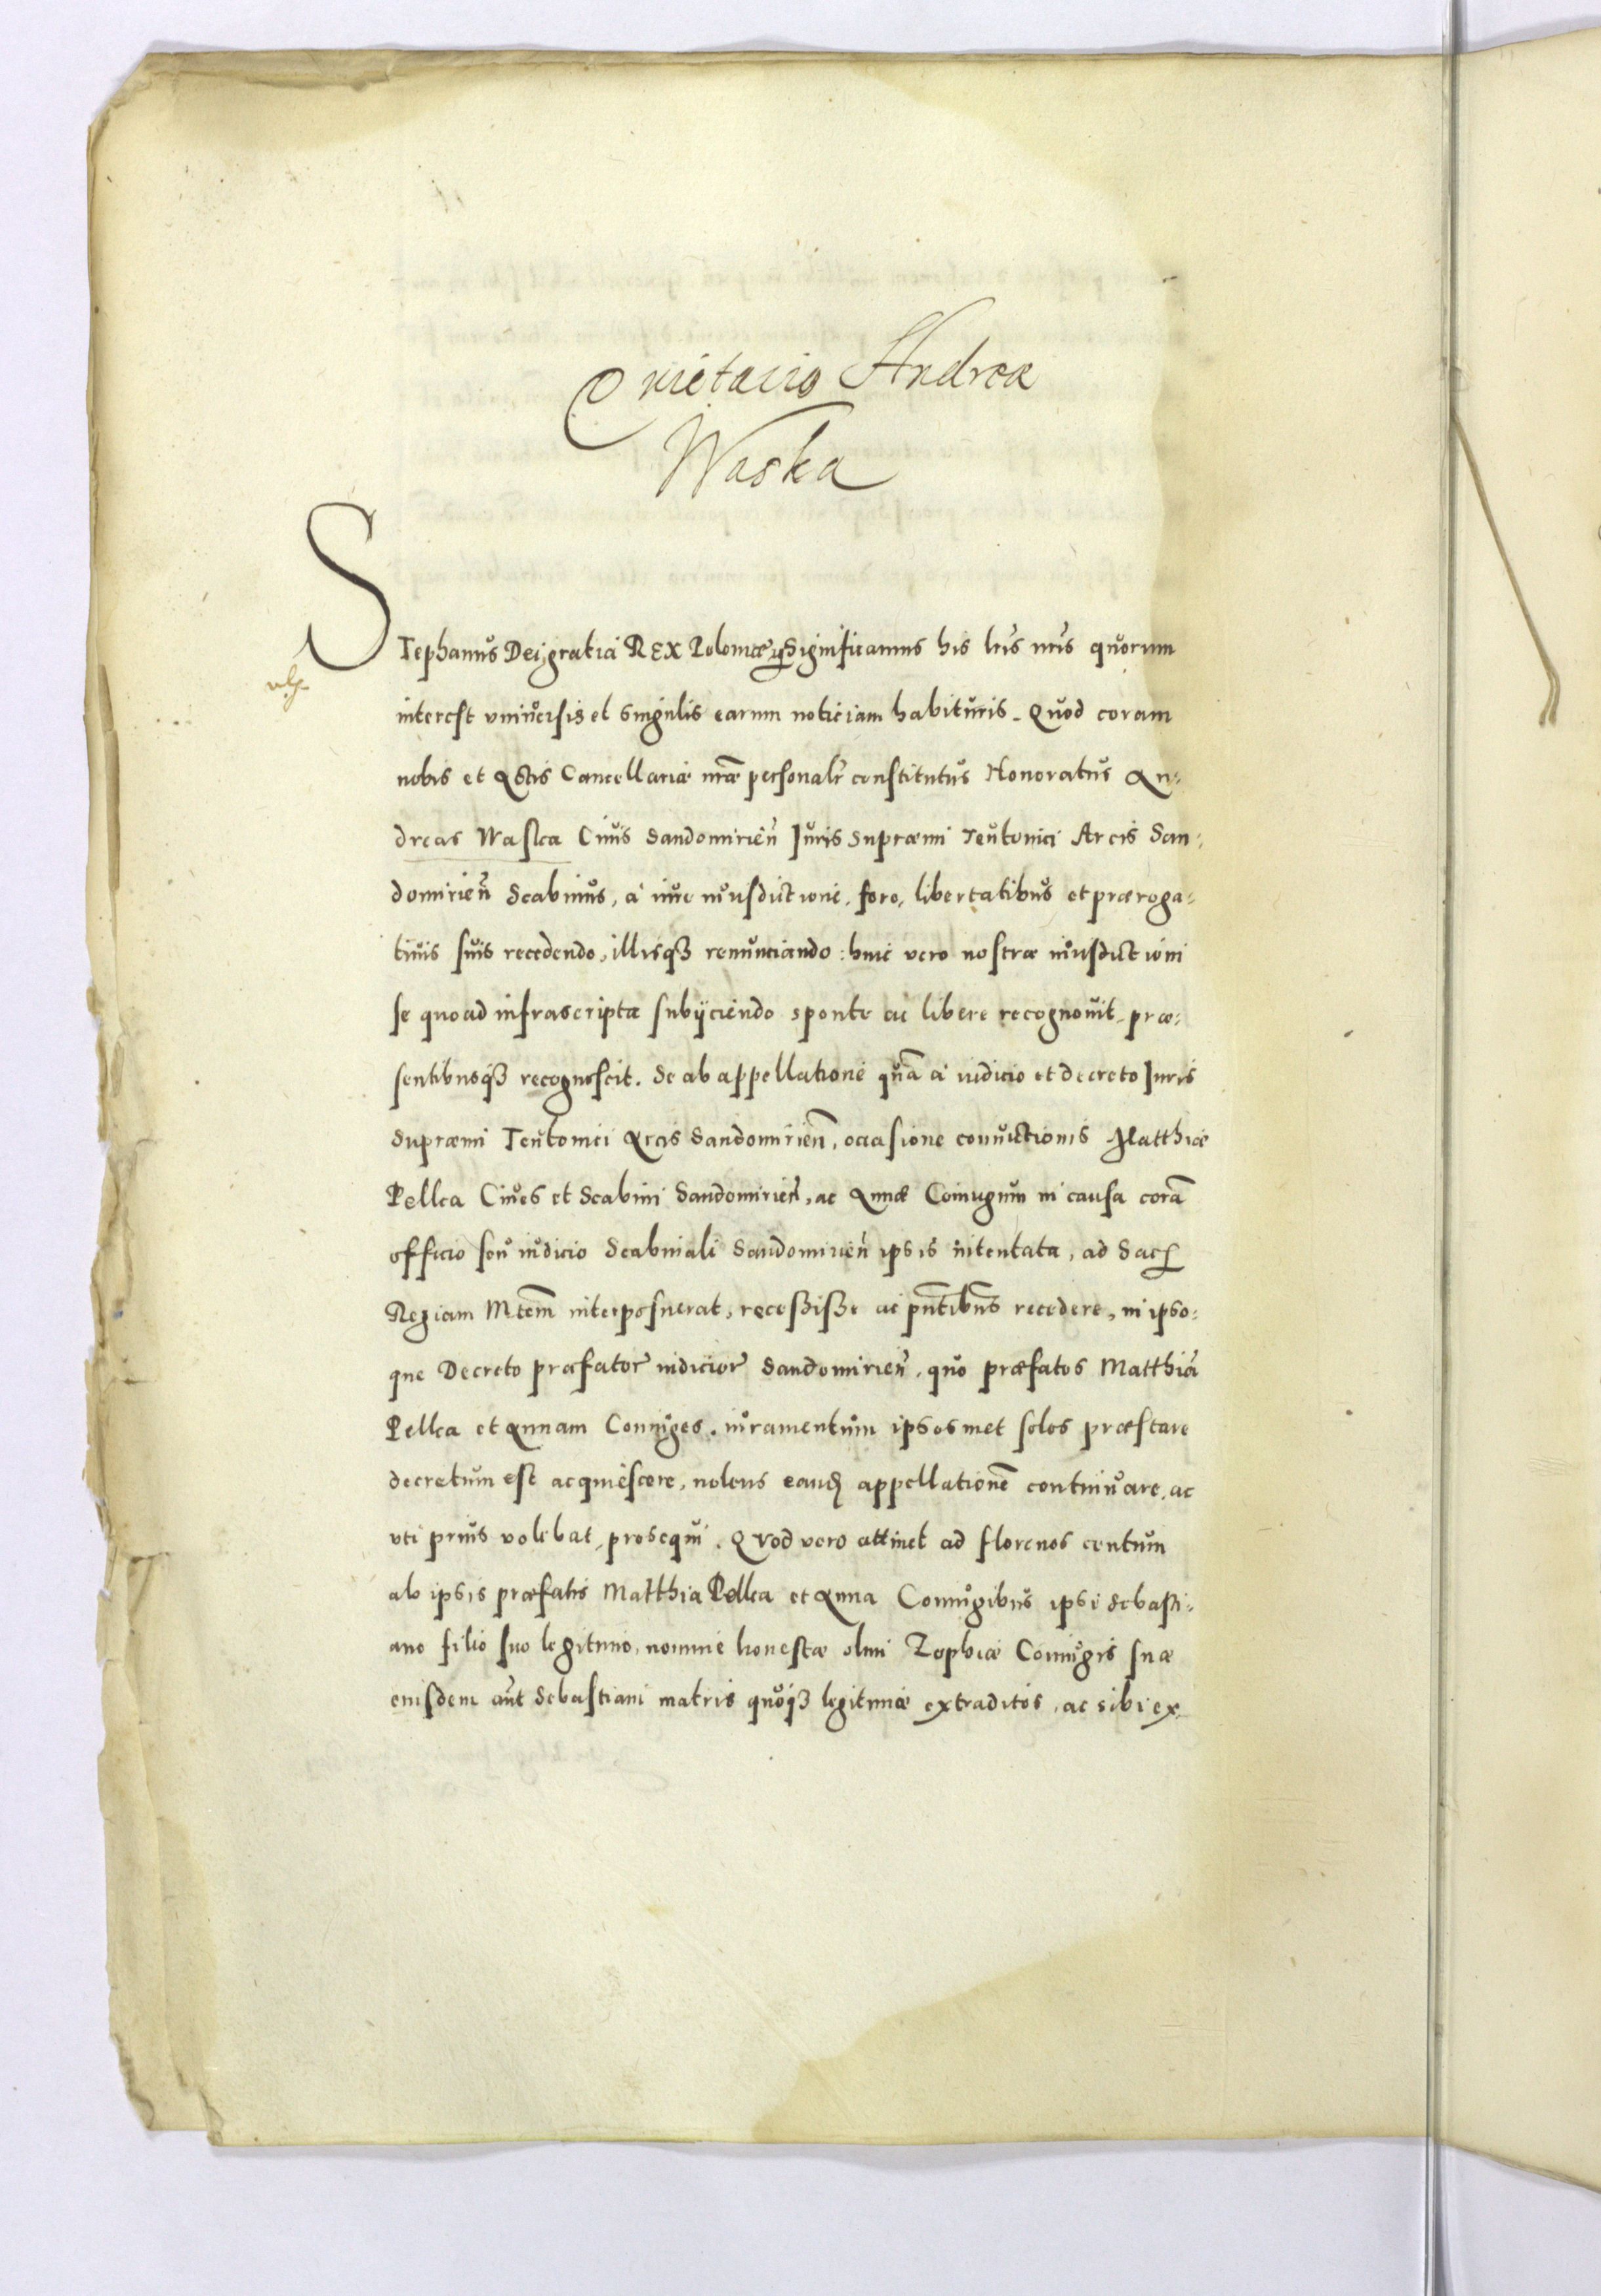 Quietacio Andreæ
Waska
STephanus Dei gratia REX Poloniæ etc Significamus his lris nris quorum
interest vniversis et singulis earum noticiam habituris. Quod coram
nobis et Actis Cancellariæ nræ personalr constitutus Honoratus An-
dreas Waska Ciuis Sandomirien Juris Supræmi Teutonici Arcis San-
domirien Scabinus, a iure iurisdictione, foro, libertatibus et præroga-
tiuis suis recedendo, illisqz renunciando: huic vero nostræ iurisdictioni
se quoad infrascripta subijciendo sponte ac libere recognouit, præ-
sentibusqz recognoscit. Se ab appellatione qua a iudicio et decreto Juris
Supræmi Teutonici Arcis Sandomirien, occasione conuictionis Matthiæ
Pelka Ciues et Scabini Sandomirien, ac Annæ Coniugum in causa cora
officio seu iudicio Scabinali Sandomirien ipsis intentata, ad Sac
Regiam Mtem interposuerat, recessisse ac pntibus recedere, in ipso-
que Decreto præfator iudicior Sandomirien, quo præfatos Matthia
Pelka et Annam Coniuges, iuramentum ipsosmet solos præstare
decretum est acquiescere, nolens eand appellatione continuare, ac
vti prius volebat, prosequi. Quod vero attinet ad florenos centum
ab ipsis præfatis Matthia Pelka et Anna Coniugibus ipsi Sebasti-
ano filio suo legitimo, nomine honestæ olim Zophiæ Coniugis suæ
eiusdem aut Sebastiani matris quoqz legitimæ extraditos, ac sibi ex